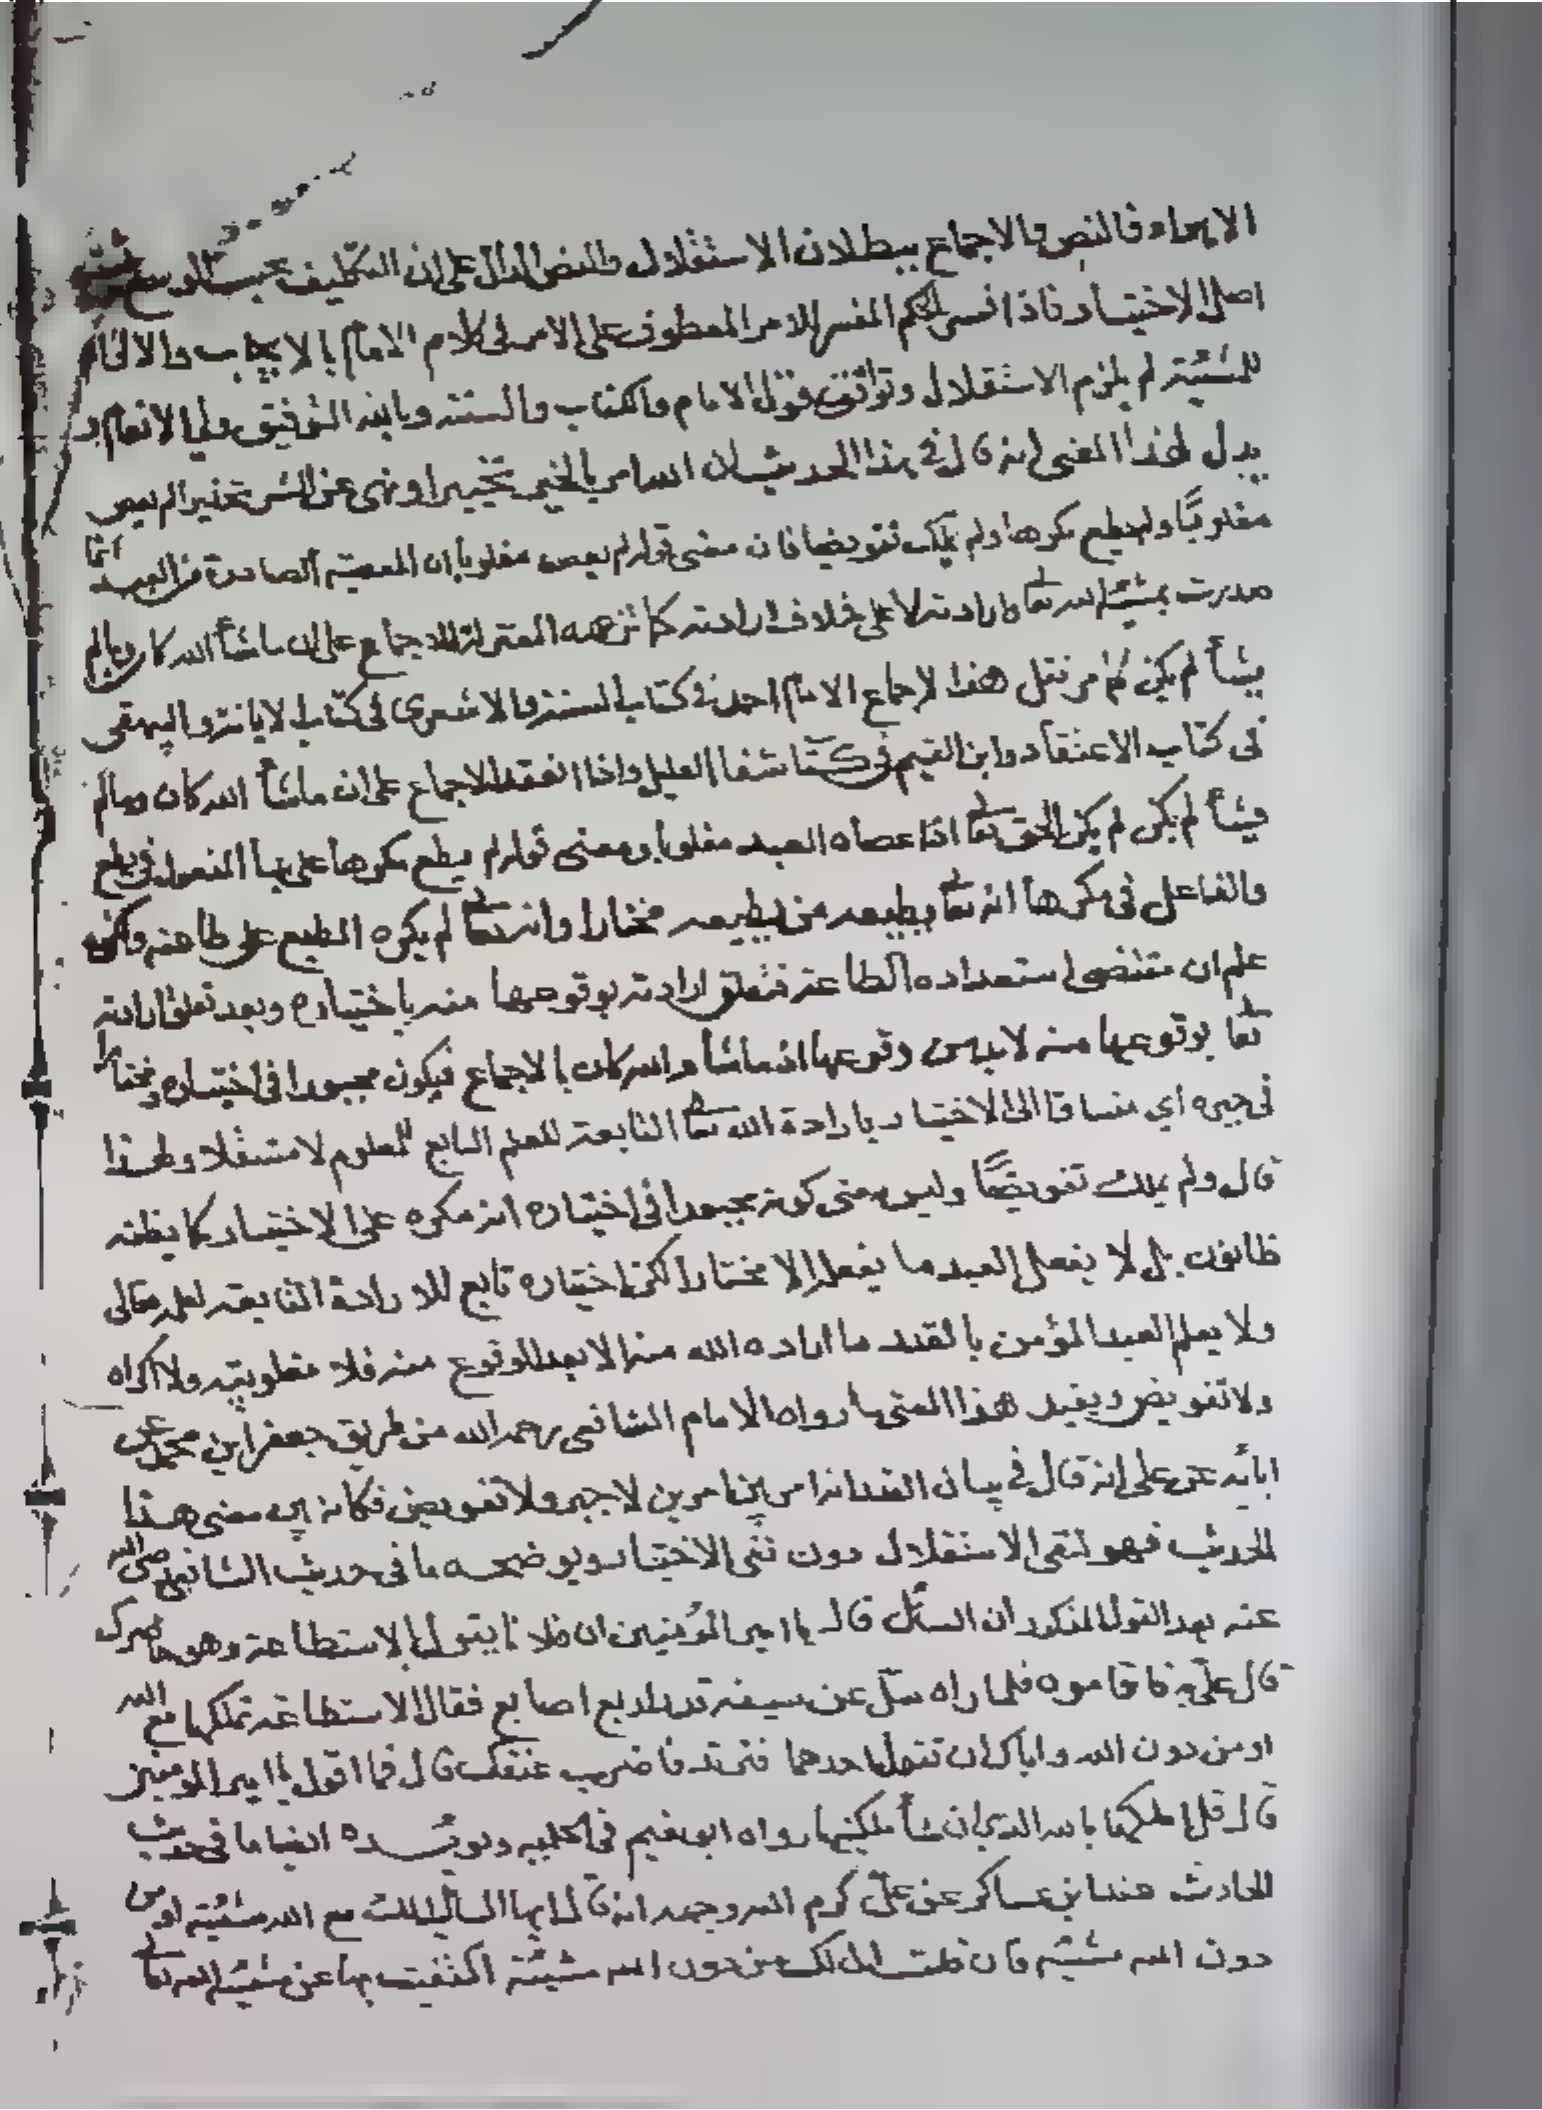 الايماء فالنص والاجماع يبطلان الاستقلال والنص الدال على ان التكليف بحسب الوسع يثبت
اصل الاختيار فاذا فسر الحكم المفسر للامر المعطوف على الامر في كلام الامام بالايجاب والالجاء
للمشيئة لم يلزم الاستقلال وتوافق قول الامام والكتاب والسنة وبالله التوفيق ولي الانعام و
يدل لهذا المعنى انه قال في هذا الحديث ان الله امر بالخير تخييرا ونهى عن الشر تحذيرا لم يعص
مغلوبًا ولم يطع مكرها ولم يملك تفويضا فان معنى قوله لم يعص مغلوبا ان المعصية الصادرة من العبد انما
صدرت بمشيئة الله تعا وارادته لا على خلاف ارادته كما تزعمه المعتزلة للاجماع على ان ما شأ الله كان وما لم
يشأ لم يكن كما مر نقل هذا الاجماع الامام احمد في كتاب السنة والاشعري في كتاب الابانة والبيهقي
في كتاب الاعتقاد وابن القيم في كتا شفا العليل واذا انعقد الاجماع على ان ما شأ الله كان وما لم
يشأ لم يكن لم يكن الحق تعا اذا عصاه العبد مغلوبا ومعنى قوله لم يطع مكرها على بنا المفعول في يطع
والفاعل في مكرها انه تعا يطيعه من يطيعه مختارا وانه تعا لم يكره المطيع على طاعته ولكنه
علم ان مقتضى استعداده الطاعة فتعلق ارادته بوقوعها منه باختياره وبعد تعلق ارادته
تعا بوقوعها منه لا بد من وقوعها اذ ما شأ الله كان بالاجماع فيكون مجبورا في اختياره ومختارا
في جبره اي منساقا الى الاختيار بارادة الله تعا التابعة للعلم التابع للمعلوم لا مستقلا ولهذا
قال ولم يملك تفويضًا وليس معنى كونه مجبورا في اختياره انه مكره على الاختيار كما يظنه
ظانون بل لا يفعل العبد ما يفعل الا مختارا لكن اختياره تابع للارادة التابعة لعلمه تعالى
ولا يعلم العبد المؤمن بالقدر ما اراده الله منه الا بعد الوقوع منه فلا مغلوبية ولا اكراه
ولا تفويض ويفيد هذا المعنى ما رواه الامام الشافعي رحمه الله من طريق جعفر ابن محمد عن
ابائه عن علي انه قال في بيان القدر انه امر بين امرين لا جبر ولا تفويض فكانه بين معنى هذا
الحديث فهو لنفي الاستقلال دون نفي الاختيار ويوضحه ما في حديث الشافعي رضى الله
عنه بعد القول المذكور ان السائل قال يا امير المؤمنين ان فلانا يقول بالاستطاعة وهو حاضرك
قال علي به فاقاموه فلما راه سل عن سيفه قدر اربع اصابع فقال الاستطاعة تملكها مع الله
او من دون الله واياك ان تقول احدهما فترتد فاضرب عنقك قال فما اقول يا امير المومنين
قال قل املكها بالله الذي ان شأ ملكنيها رواه ابو نعيم في الحلية ويويده ايضا ما في حديث
الحادث عند ابن عساكر عن علي كرم الله وجهه انه قال ايها السائل الك مع الله مشيئة او من
دون الله مشيئة فان قلت ان لك من دون الله مشيئة اكتفيت بها عن مشيئة الله تعا